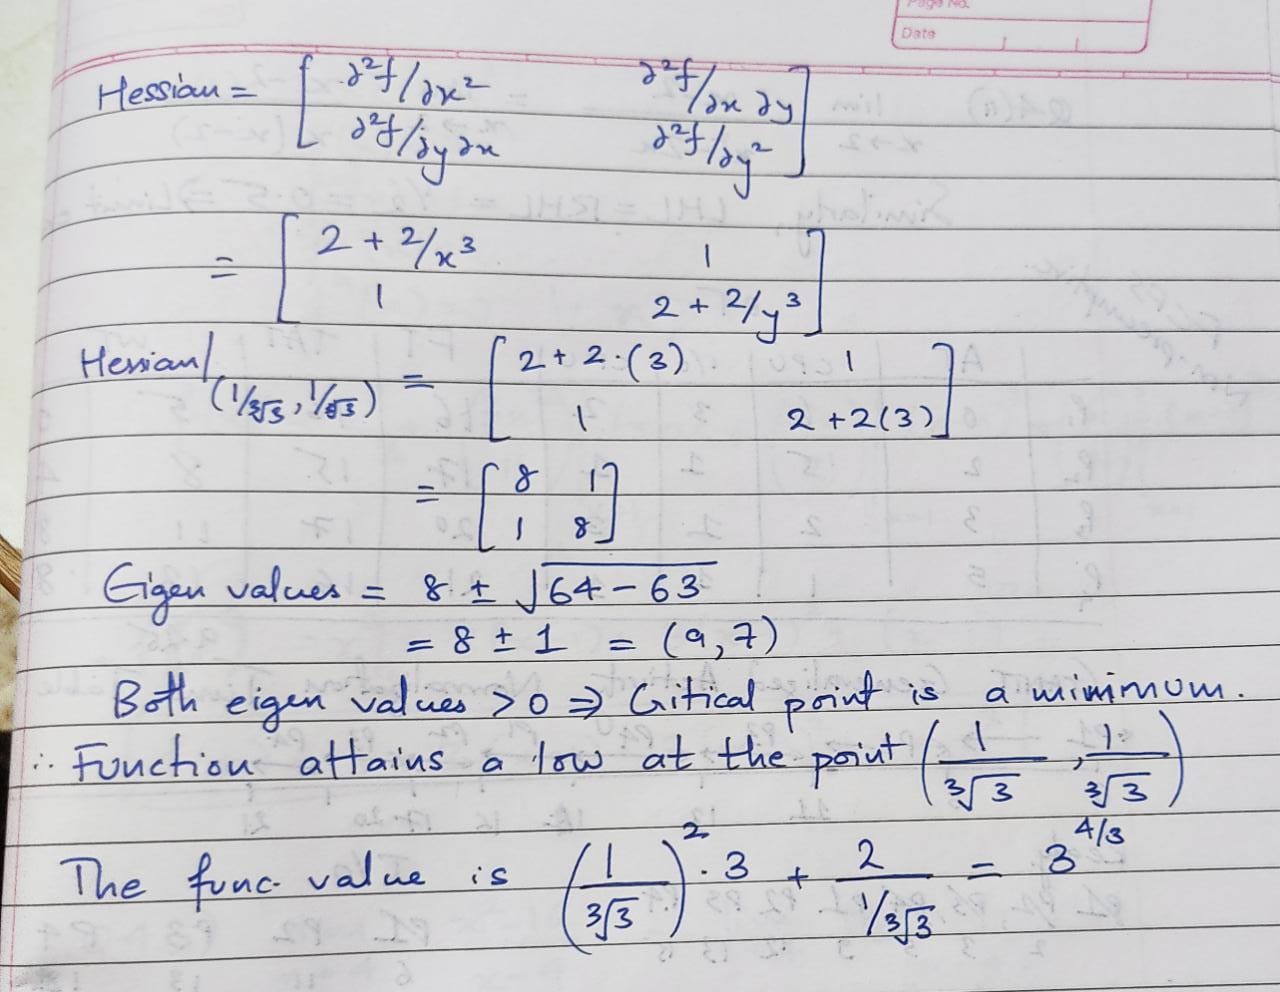 Page No.
Date
Hessian = [ ∂²f/∂x² ∂²f/∂x ∂y
∂²f/∂y ∂x ∂²f/∂y² ]
= [ 2 + 2/x³ 1
1 2 + 2/y³ ]
Hessian|(1/∛3, 1/∛3) = [ 2 + 2·(3) 1
1 2 + 2(3) ]
= [ 8 1
1 8 ]
Eigen values = 8 ± √64 - 63
= 8 ± 1 = (9, 7)
Both eigen values > 0 ⇒ Critical point is a minimum.
∴ Function attains a low at the point (1/∛3, 1/∛3)
The func. value is (1/∛3)² · 3 + 2/(1/∛3) = 3^4/3